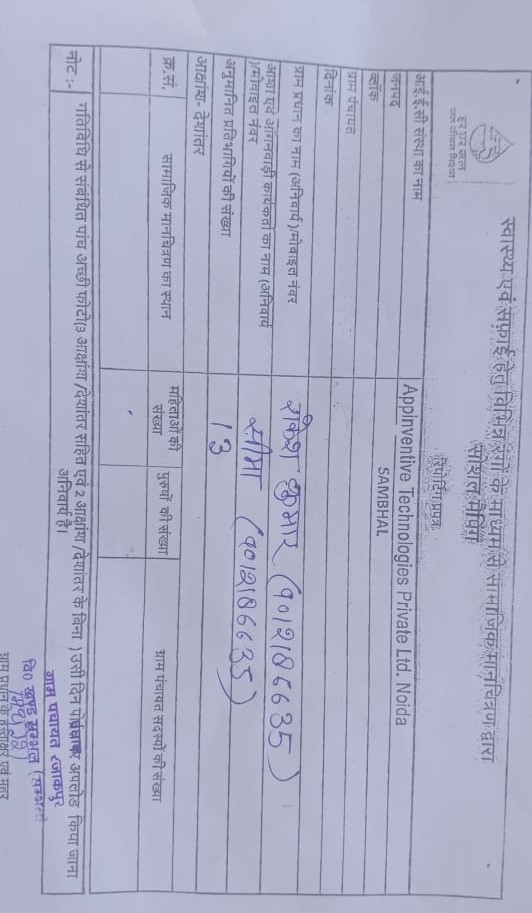 हर घर जल
जल जीवन मिशन
स्वास्थ्य एवं सफाई हेतु विभिन्न रंगो के माध्यम से सामाजिक मानचित्रण द्वारा
सोशल मैपिंग
रिपोर्टिंग प्रपत्र
आई.ई.सी संस्था का नाम Appinventive Technologies Private Ltd. Noida
जनपद SAMBHAL
ब्लॉक
ग्राम पंचायत
दिनांक
ग्राम प्रधान का नाम (अनिवार्य)/मोबाइल नंबर राकेश कुमार (9012186635)
आशा एवं आंगनवाड़ी कार्यकर्ता का नाम (अनिवार्य
)/मोबाइल नंबर सीमा (9012186635)
अनुमानित प्रतिभागियों की संख्या 13
आक्षांश- देशांतर
क्र.सं. सामाजिक मानचित्रण का स्थान महिलाओं की संख्या पुरुषों की संख्या ग्राम पंचायत सदस्यों की संख्या
नोट :- गतिविधि से संबंधित पांच अच्छी फोटो(3 आक्षांश /देशांतर सहित एवं 2 आक्षांश /देशांतर के बिना ) उसी दिन पोर्टल पर अपलोड किया जाना
अनिवार्य है।
ग्राम पंचायत
वि0 खण्ड सम्भल (सम्भल)
ग्राम प्रधान के हस्ताक्षर एवं मुहर